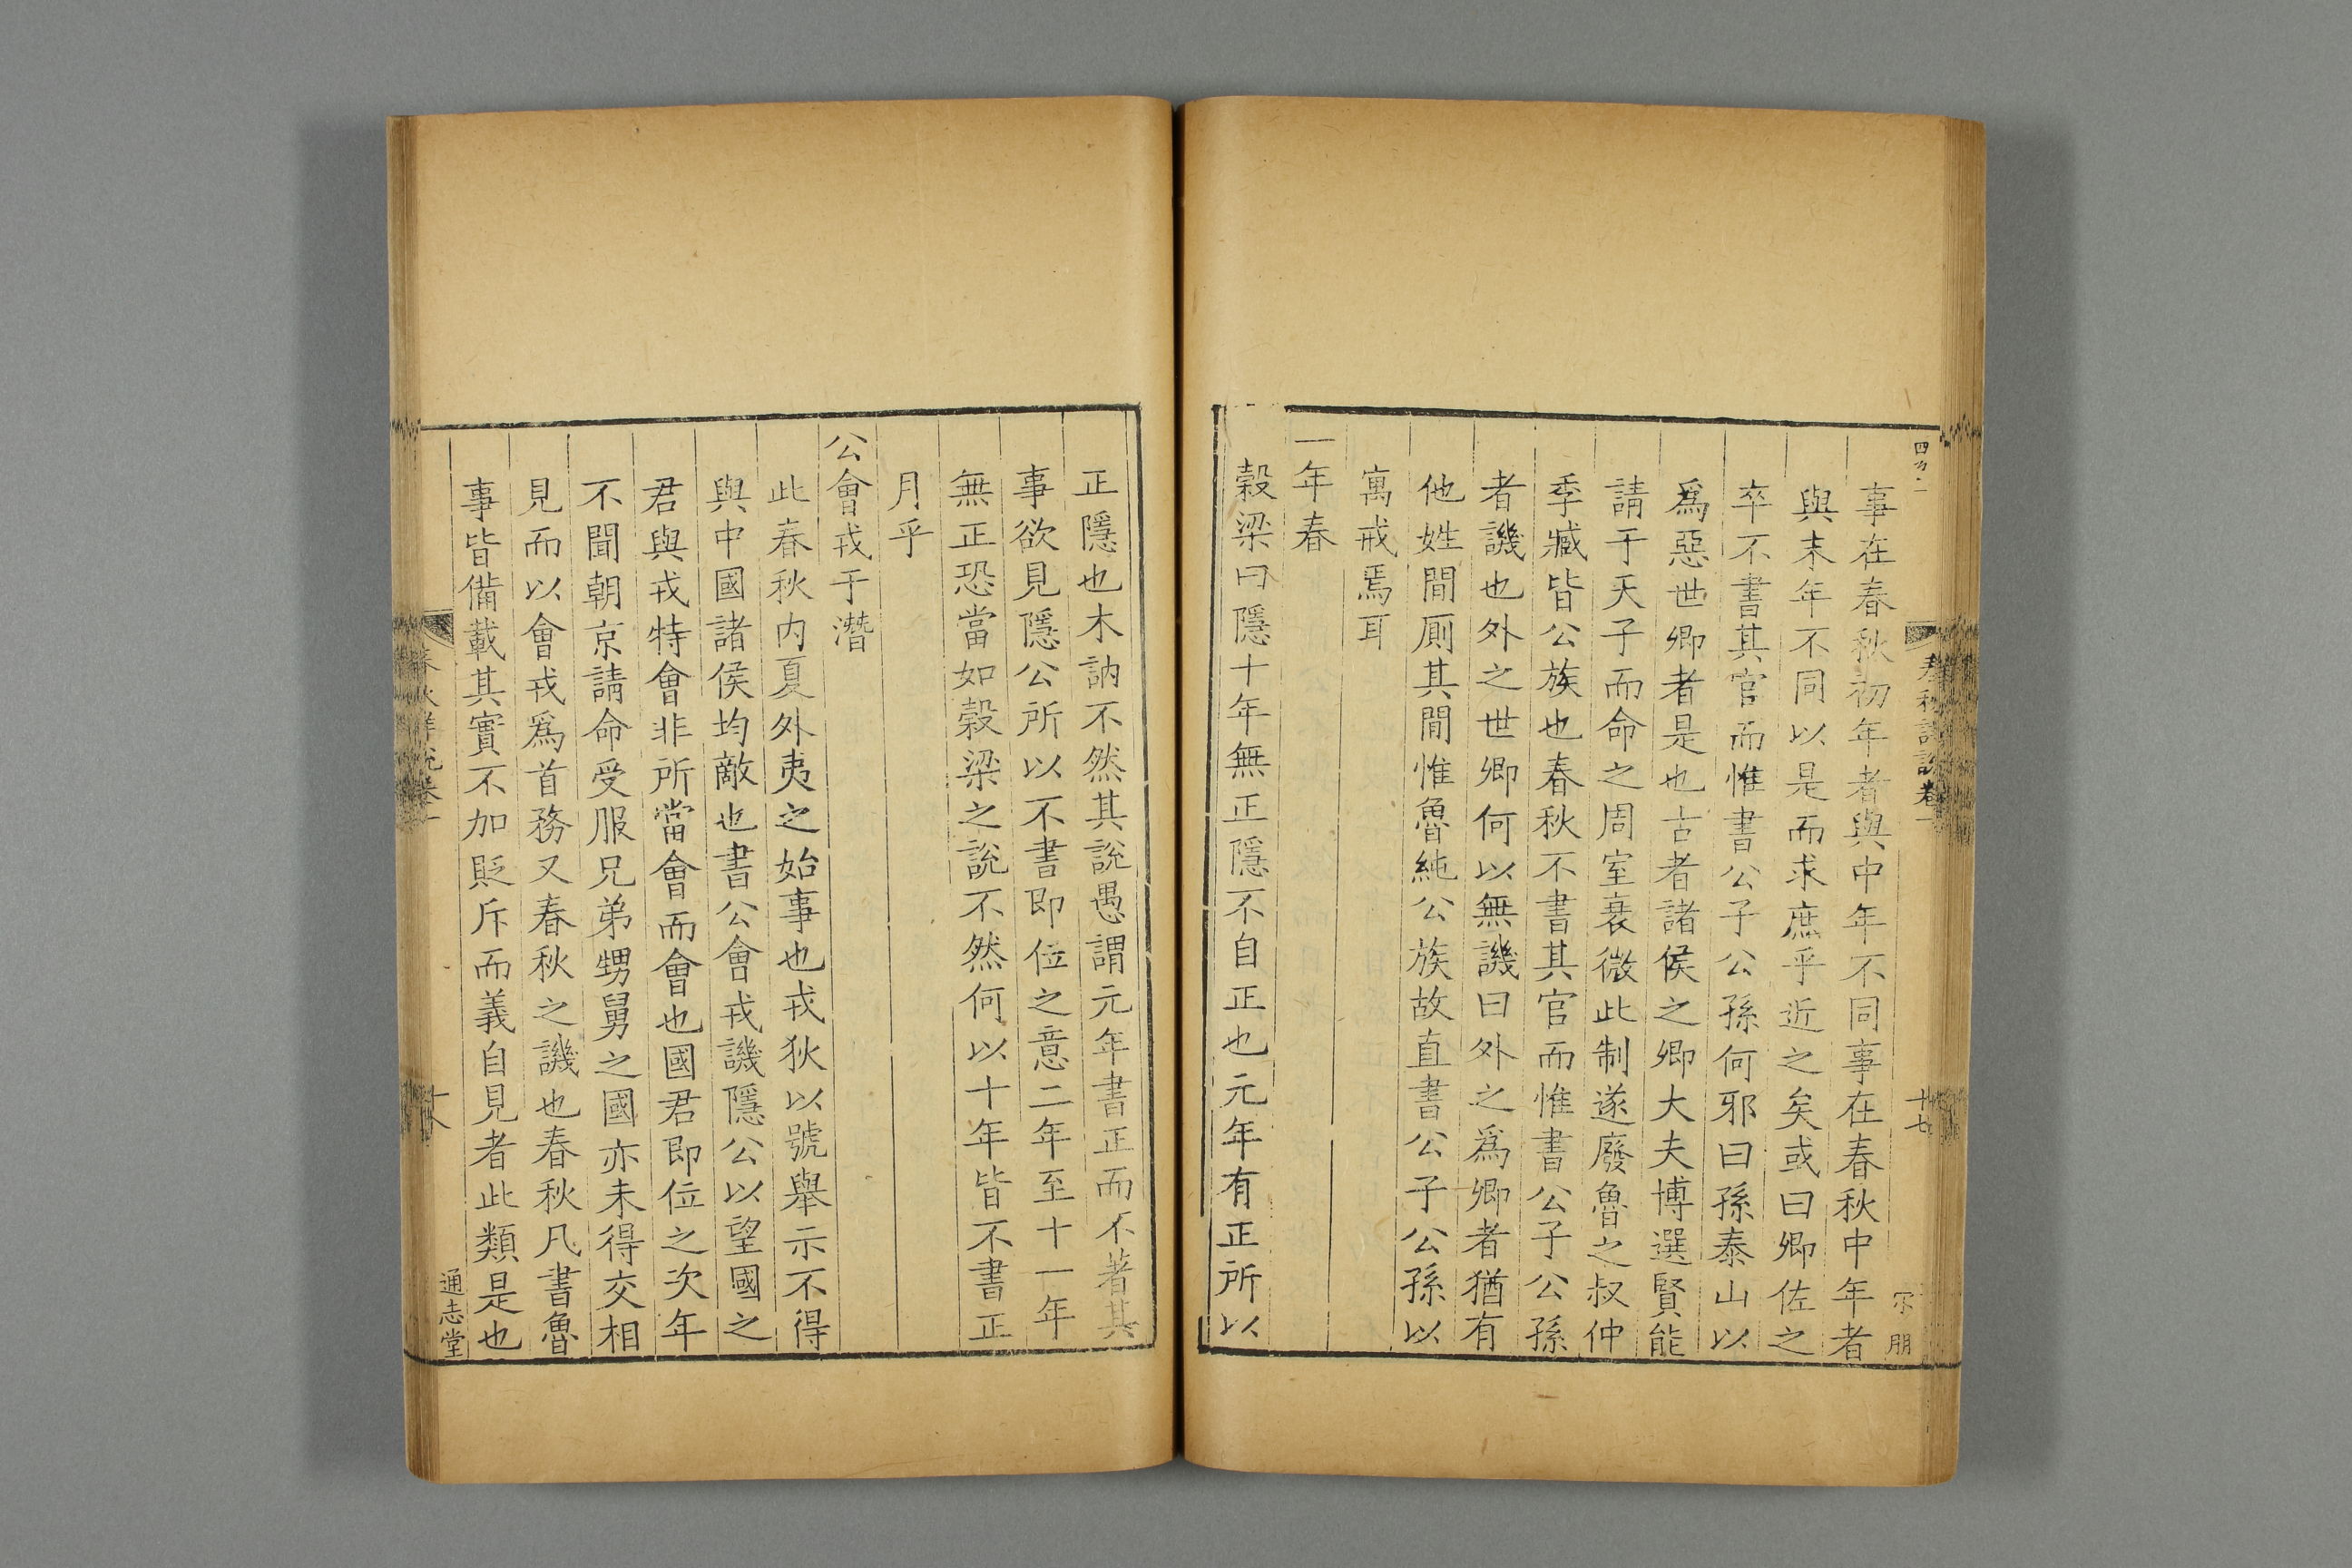 春秋詳說卷一
十七
宋朋
事在春秋初年者與中年不同事在春秋中年者
與末年不同以是而求庶乎近之矣或曰卿佐之
卒不書其官而惟書公子公孫何邪曰孫泰山以
爲惡世卿者是也古者諸侯之卿大夫博選賢能
請于天子而命之周室衰微此制遂廢魯之叔仲
季臧皆公族也春秋不書其官而惟書公子公孫
者譏也外之世卿何以無譏曰外之爲卿者猶有
他姓間厠其間惟魯純公族故直書公子公孫以
寓戒焉耳
一年春
穀梁曰隱十年無正隱不自正也元年有正所以
正隱也木訥不然其說愚謂元年書正而不著其
事欲見隱公所以不書即位之意二年至十一年
無正恐當如穀梁之說不然何以十年皆不書正
月乎
公會戎于潛
此春秋内夏外夷之始事也戎狄以號舉示不得
與中國諸侯均敵也書公會戎譏隱公以望國之
君與戎特會非所當會而會也國君即位之次年
不聞朝京請命受服兄弟甥舅之國亦未得交相
見而以會戎爲首務又春秋之譏也春秋凡書魯
事皆備載其實不加貶斥而義自見者此類是也
春秋詳說卷一
通志堂